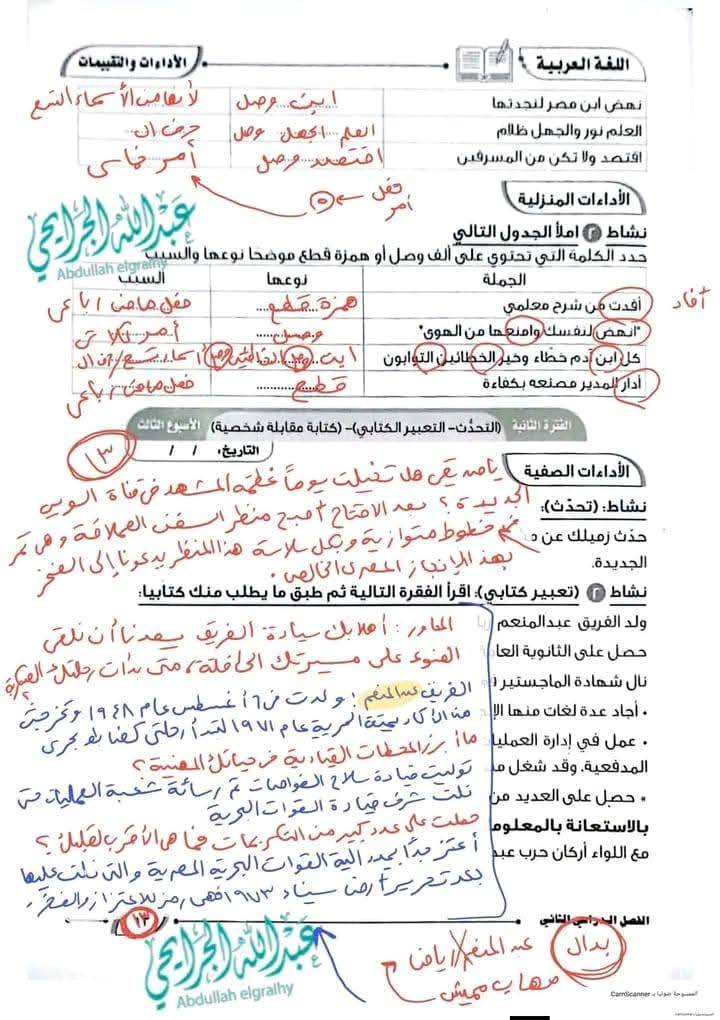 اللغة العربية
الأداءات والتقييمات
نهض ابن مصر لنجدتها ابن وصل لأنها من الأسماء التسع
العلم نور والجهل ظلام العلم الجهل وصل حرف ال
اقتصد ولا تكن من المسرفين اقتصد وصل أمر خماسى
فعل أمر ← ٥
الأداءات المنزلية
عبدالله الجرايحي
Abdullah elgraihy
نشاط ٢ املأ الجدول التالي
حدد الكلمة التي تحتوي على ألف وصل أو همزة قطع موضحًا نوعها والسبب
الجملة نوعها السبب
أفدت من شرح معلمي همزة قطع فعل ماضى رباعى
أفاد
"انهض لنفسك وامنعها من الهوى" وصل أمر ثلاثى
كل ابن آدم خطاء وخير الخطائين التوابون ابن وصل الخطائين وصل أسماء تسع / ال
أدار المدير مصنعه بكفاءة قطع فعل ماضى رباعى
الفترة الثانية (التحدُّث- التعبير الكتابي)- (كتابة مقابلة شخصية) الأسبوع الثالث
التاريخ: / /
١٣
الأداءات الصفية
يا صديقى هل تخيلت يوماً عظمة المشهد فى قناة السويس
الجديدة؟ بعد الافتتاح أصبح منظر السفن العملاقة وهى تمر
فى خطوط متوازية وبكل سلاسة هذا المنظر يدعونا إلى الفخر
بهذا الإنجاز المصرى الخالص.
نشاط: (تحدّث):
حدّث زميلك عن
الجديدة.
نشاط ٢ (تعبير كتابي): اقرأ الفقرة التالية ثم طبق ما يطلب منك كتابيا:
ولد الفريق عبدالمنعم
حصل على الثانوية
نال شهادة الماجستير
• أجاد عدة لغات منها
• عمل في إدارة
المدفعية. وقد شغل
• حصل على العديد من
بالاستعانة
مع اللواء أركان حرب
المحاور: أهلا بك سيادة الفريق يسعدنا أن نلقى
الضوء على مسيرتك الحافلة، متى بدأت رحلتك العسكرية؟
الفريق عبدالمنعم: ولدت فى ٦ أغسطس عام ١٩٤٨ وتخرجت
من الأكاديمية البحرية عام ١٩٧١ لتبدأ رحلتى كضابط بحرى
ما أبرز المحطات القيادية فى حياتك المهنية؟
توليت قيادة سلاح الغواصات ثم رئاسة شعبة العمليات حتى
نلت شرف قيادة القوات البحرية
حصلت على عدد كبير من التكريمات فما هى الأقرب لقلبك؟
أعتز جدًا بميدالية القوات البحرية المصرية والتى نلت عليها
بعد تحرير أرض سيناء ١٩٧٣ فهى رمز للاعتزاز والفخر.
الفصل الدراسي الثاني
١٣
عبدالله الجرايحي
Abdullah elgralhy
بدال عبد المنعم رياض
مهاب مميش
الممسوحة ضوئيا بـ CamScanner
CamScanner